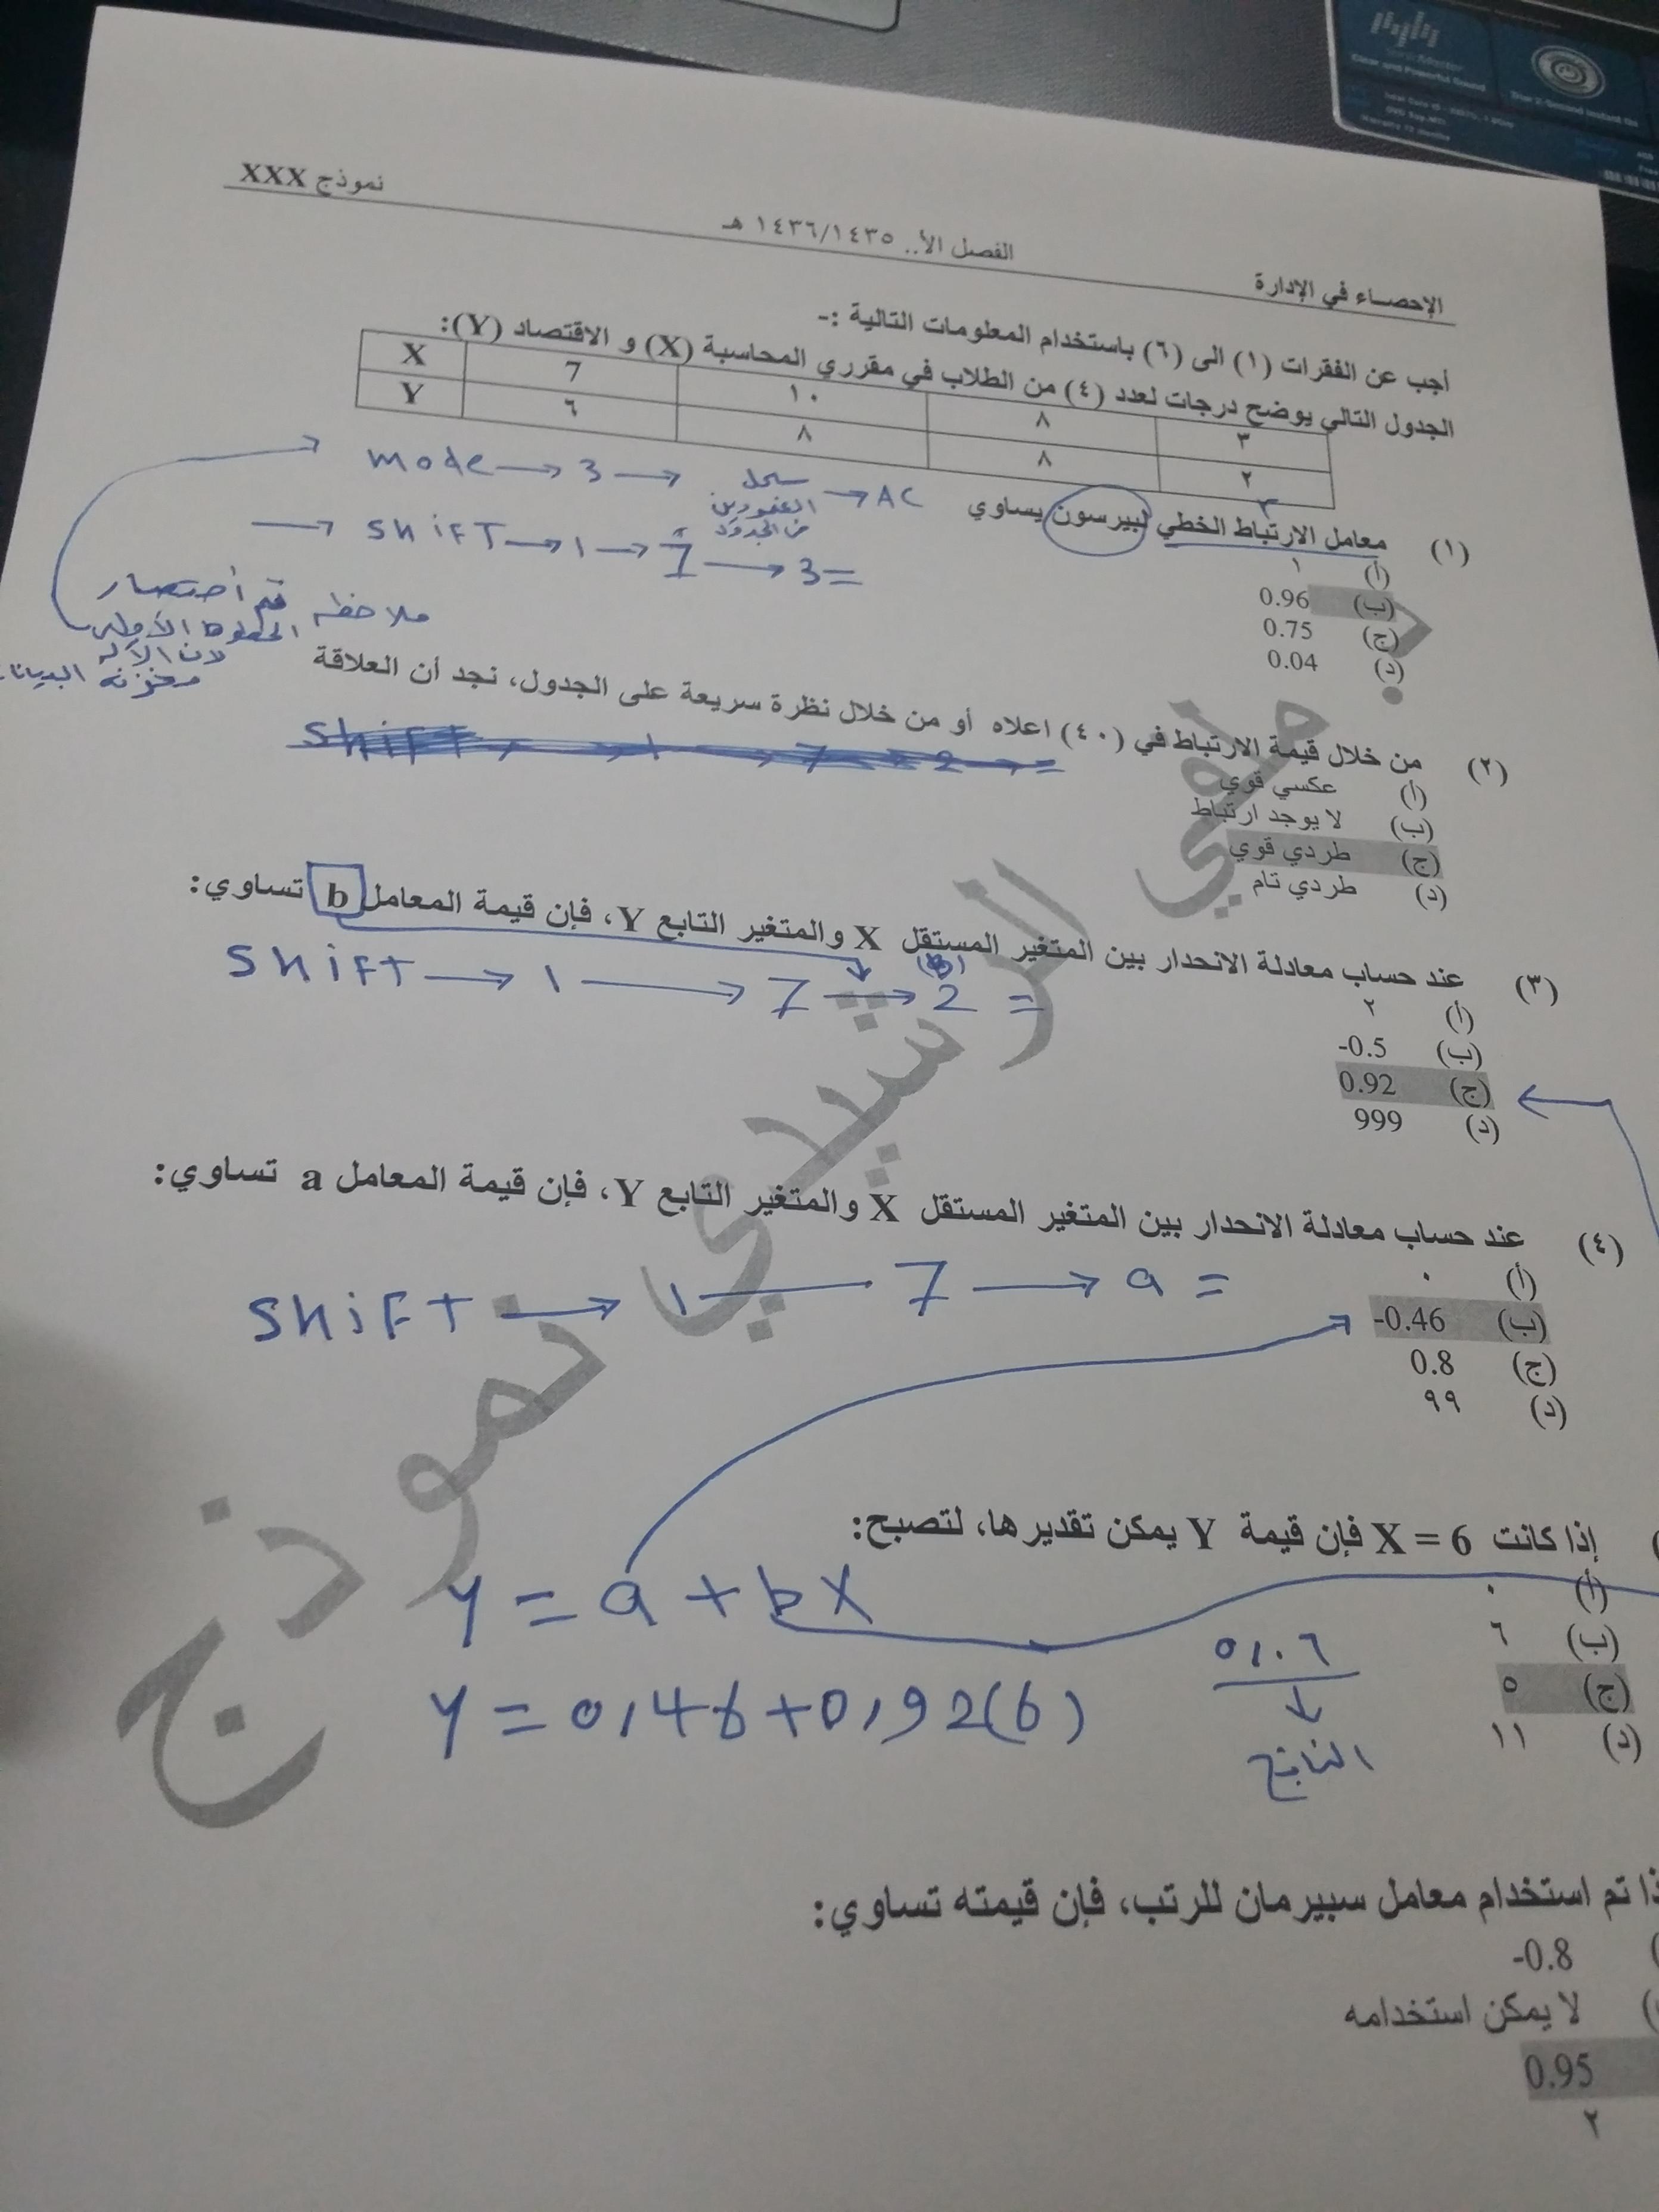 نموذج XXX
الفصل الأ.. ١٤٣٦/١٤٣٥ هـ
الإحصاء في الإدارة
أجب عن الفقرات (١) الى (٦) باستخدام المعلومات التالية :-
الجدول التالي يوضح درجات لعدد (٤) من الطلاب في مقرري المحاسبة (X) و الاقتصاد (Y):
X 7 ١٠ ٨ ٣
Y ٦ ٨ ٨ ٢
mode → 3 → سجل العمودين من الجدول → AC
→ shift → 1 → 7 → 3 =
ملاحظه تم أختصار
الخطوط الأولى
لان الآله
مخزنه البيانات
(١) معامل الارتباط الخطي لبيرسون يساوي
(أ) ١
(ب) 0.96
(ج) 0.75
(د) 0.04
(٢) من خلال قيمة الارتباط في (٤٠) اعلاه أو من خلال نظرة سريعة على الجدول، نجد أن العلاقة
shift → 1 → 7 → 2 =
(أ) عكسي قوي
(ب) لا يوجد ارتباط
(ج) طردي قوي
(د) طردي تام
(٣) عند حساب معادلة الانحدار بين المتغير المستقل X والمتغير التابع Y، فإن قيمة المعامل b تساوي:
shift → 1 → 7 → 2 =
(b)
(أ) ٢
(ب) -0.5
(ج) 0.92
(د) 999
(٤) عند حساب معادلة الانحدار بين المتغير المستقل X والمتغير التابع Y، فإن قيمة المعامل a تساوي:
shift → 1 — 7 → a =
(أ) ٠
(ب) -0.46
(ج) 0.8
(د) ٩٩
إذا كانت X = 6 فإن قيمة Y يمكن تقديرها، لتصبح:
(أ) ٠
(ب) ٦
(ج) ٥
(د) ١١
y = a + bX
y = 0,46+0,92(6)
٥,٠٦
↓
الناتج
ذا تم استخدام معامل سبيرمان للرتب، فإن قيمته تساوي:
-0.8
لا يمكن استخدامه
0.95
٢
نموذج الرشيدي